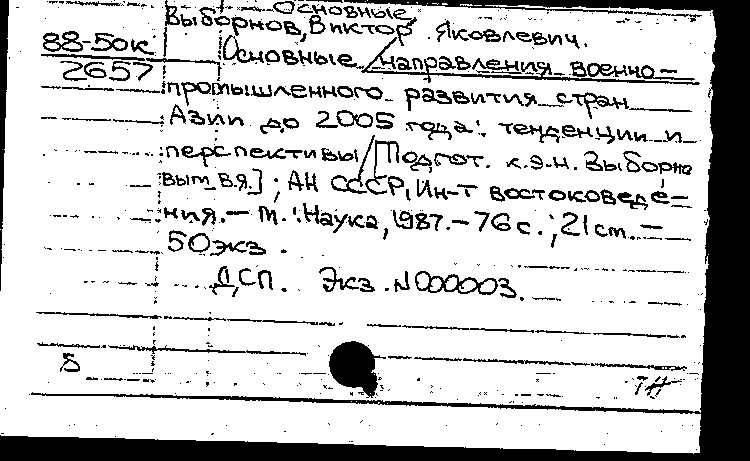 Основные
Выборнов, Виктор Яковлевич.
88-50к
2657
Основные направления военно-
промышленного развития стран
Азии до 2005 года: тенденции и
перспективы / [Подгот. к.э.н. Выборно
вым В.Я.]; АН СССР, Ин-т востоковеде-
ния. – М.: Наука, 1987. – 76 с.; 21 cm. –
50 экз.
ДСП. Экз. N 000003.
Б